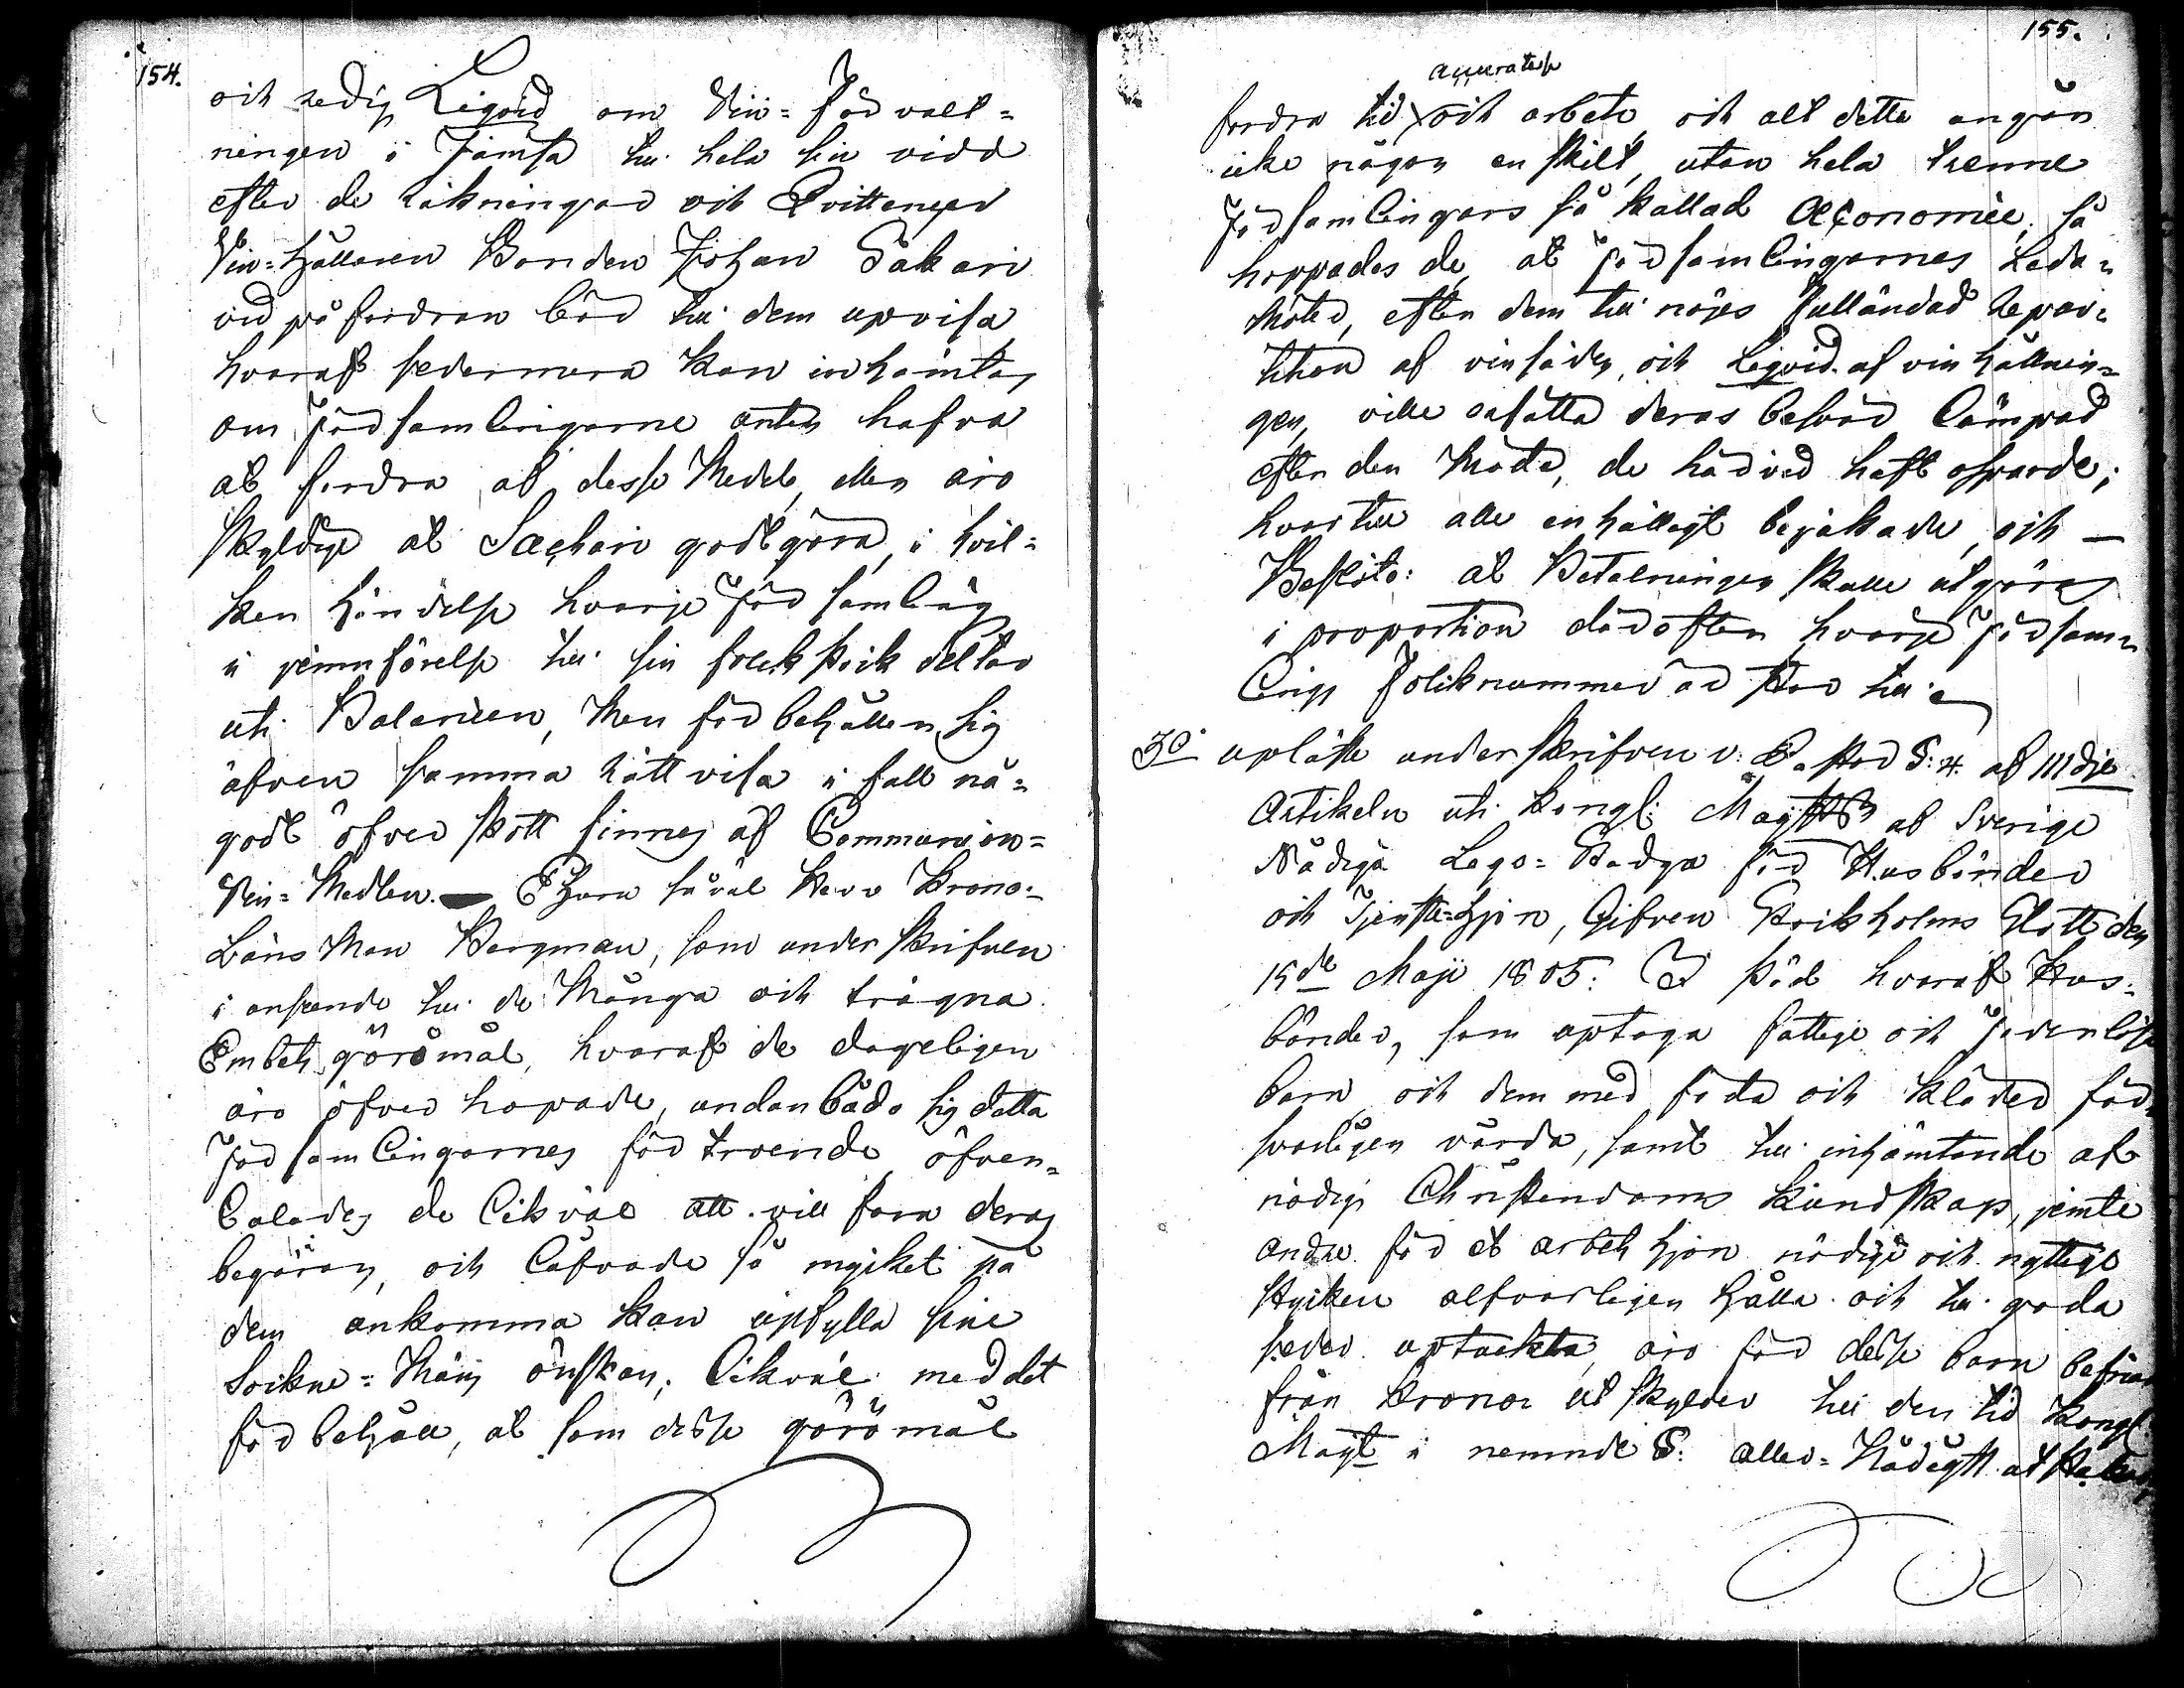 154.
och redig Liqvid om Vin=Förvalt=
ningen i Jämsä till hela sin vidd
efter de Räkningar och Qvittencer
Vin=Hållaren Bonden Johan Säkäri
vid påfordran bör till dem upvisa
hvaraf sedermera kan inhämtas
om Församlingarne antin hafva
at fordra af desse Medel, eller äro
skyldige at Sæcheri godtgöra, i hvil=
ken händelse hvarje Församling
i jemnförelse till sin folck styrk deltar
uti Balancen, Men förbehållen sig
äfven samma rättvisa i fall nå=
godt öfverskott finnes af Communion=
Vin=Medlen. — Ehuru såväl Herr Krono=
Läns Man Bergman, som underskrifven
i anseende till de Många och trägna
Embets göromål, hvaraf de dageligen
äro öfverhopade, undanbådo sig detta
Församlingarnes förtroende, öfver=
talades de likväl att villfara deras
begäran, och låfvade så mycket på
dem ankomma kan upfylla sine
Sockne=Mäns önskan; likväl med det
förbehåll, at som desse göromål
155.
accuratesse
fordra tid och arbete och alt dette angår
icke någon enskilt, utan hela trenne
Församlingars så kallad Œconomie, så
hoppades de, at Församlingarnes Leda=
möter, efter dem till nöjes fulländad repar=
tition af vinsäden, och Liqvid af vinhållnin=
gen, ville ersätta deras besvär lämpad
efter den Möda, de härvid haft ospard;
hvartill alle enhälligt bejakade, och —
Beslöto: at Betalningen skulle utgöras
i proportion därefter hvarje Försam=
lings Folknummer är stor till.
3o upläste underskrifven v: Pastor §: 4. af III dje
Artikeln uti Kongl: Maij:tts af Sverige
Nådiga Lego=Stadga för Husbönder
och Tjenste-Hjon, Gifven Griksholms Slott den
15de Maji 1805: I stöd hvaraf Hus=
bönder, som uptaga fattige och Föderlöse
barn och dem med föda och kläder för=
svarligen vårda, samt till inhämtande af
nödig Christendoms kundskap, jemte
andre för et arbets hjon nödige och nyttige
stycken alfvarligen hålla och till goda
seder uptuckta, äro för desse barn befriade
från Kronones utskylder till den tid Kongl:
Maijt i nemnde §: aller=Nådigst utstakar